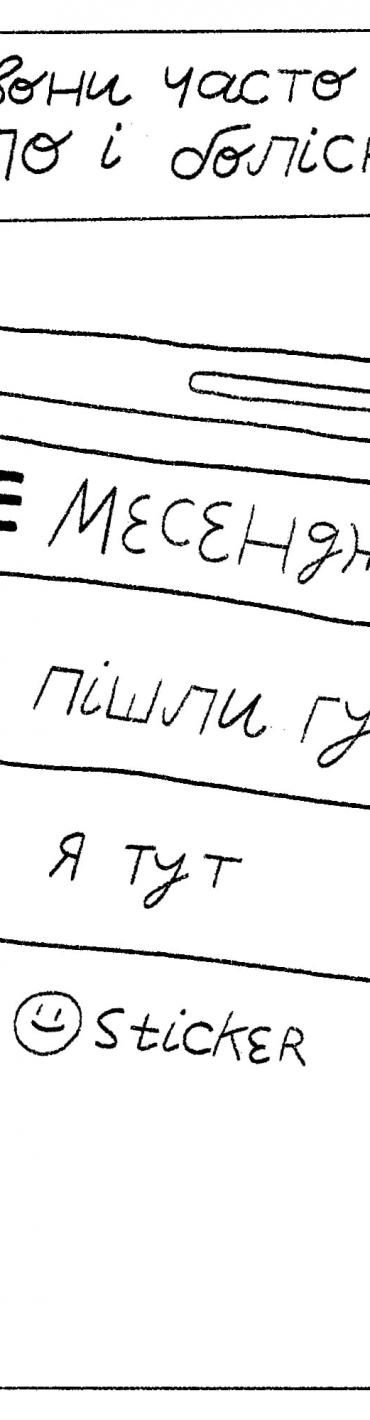 вони часто
ло і боліс
МЕСЕНДЖ
пішли гу
я тут
Sticker